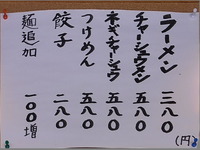 ラーメン 三八〇
チャーシューメン 五八〇
ネギチャーシュウ 五八〇
つけめん 五八〇
餃子 二八〇
麺追加 一〇〇増
(円)